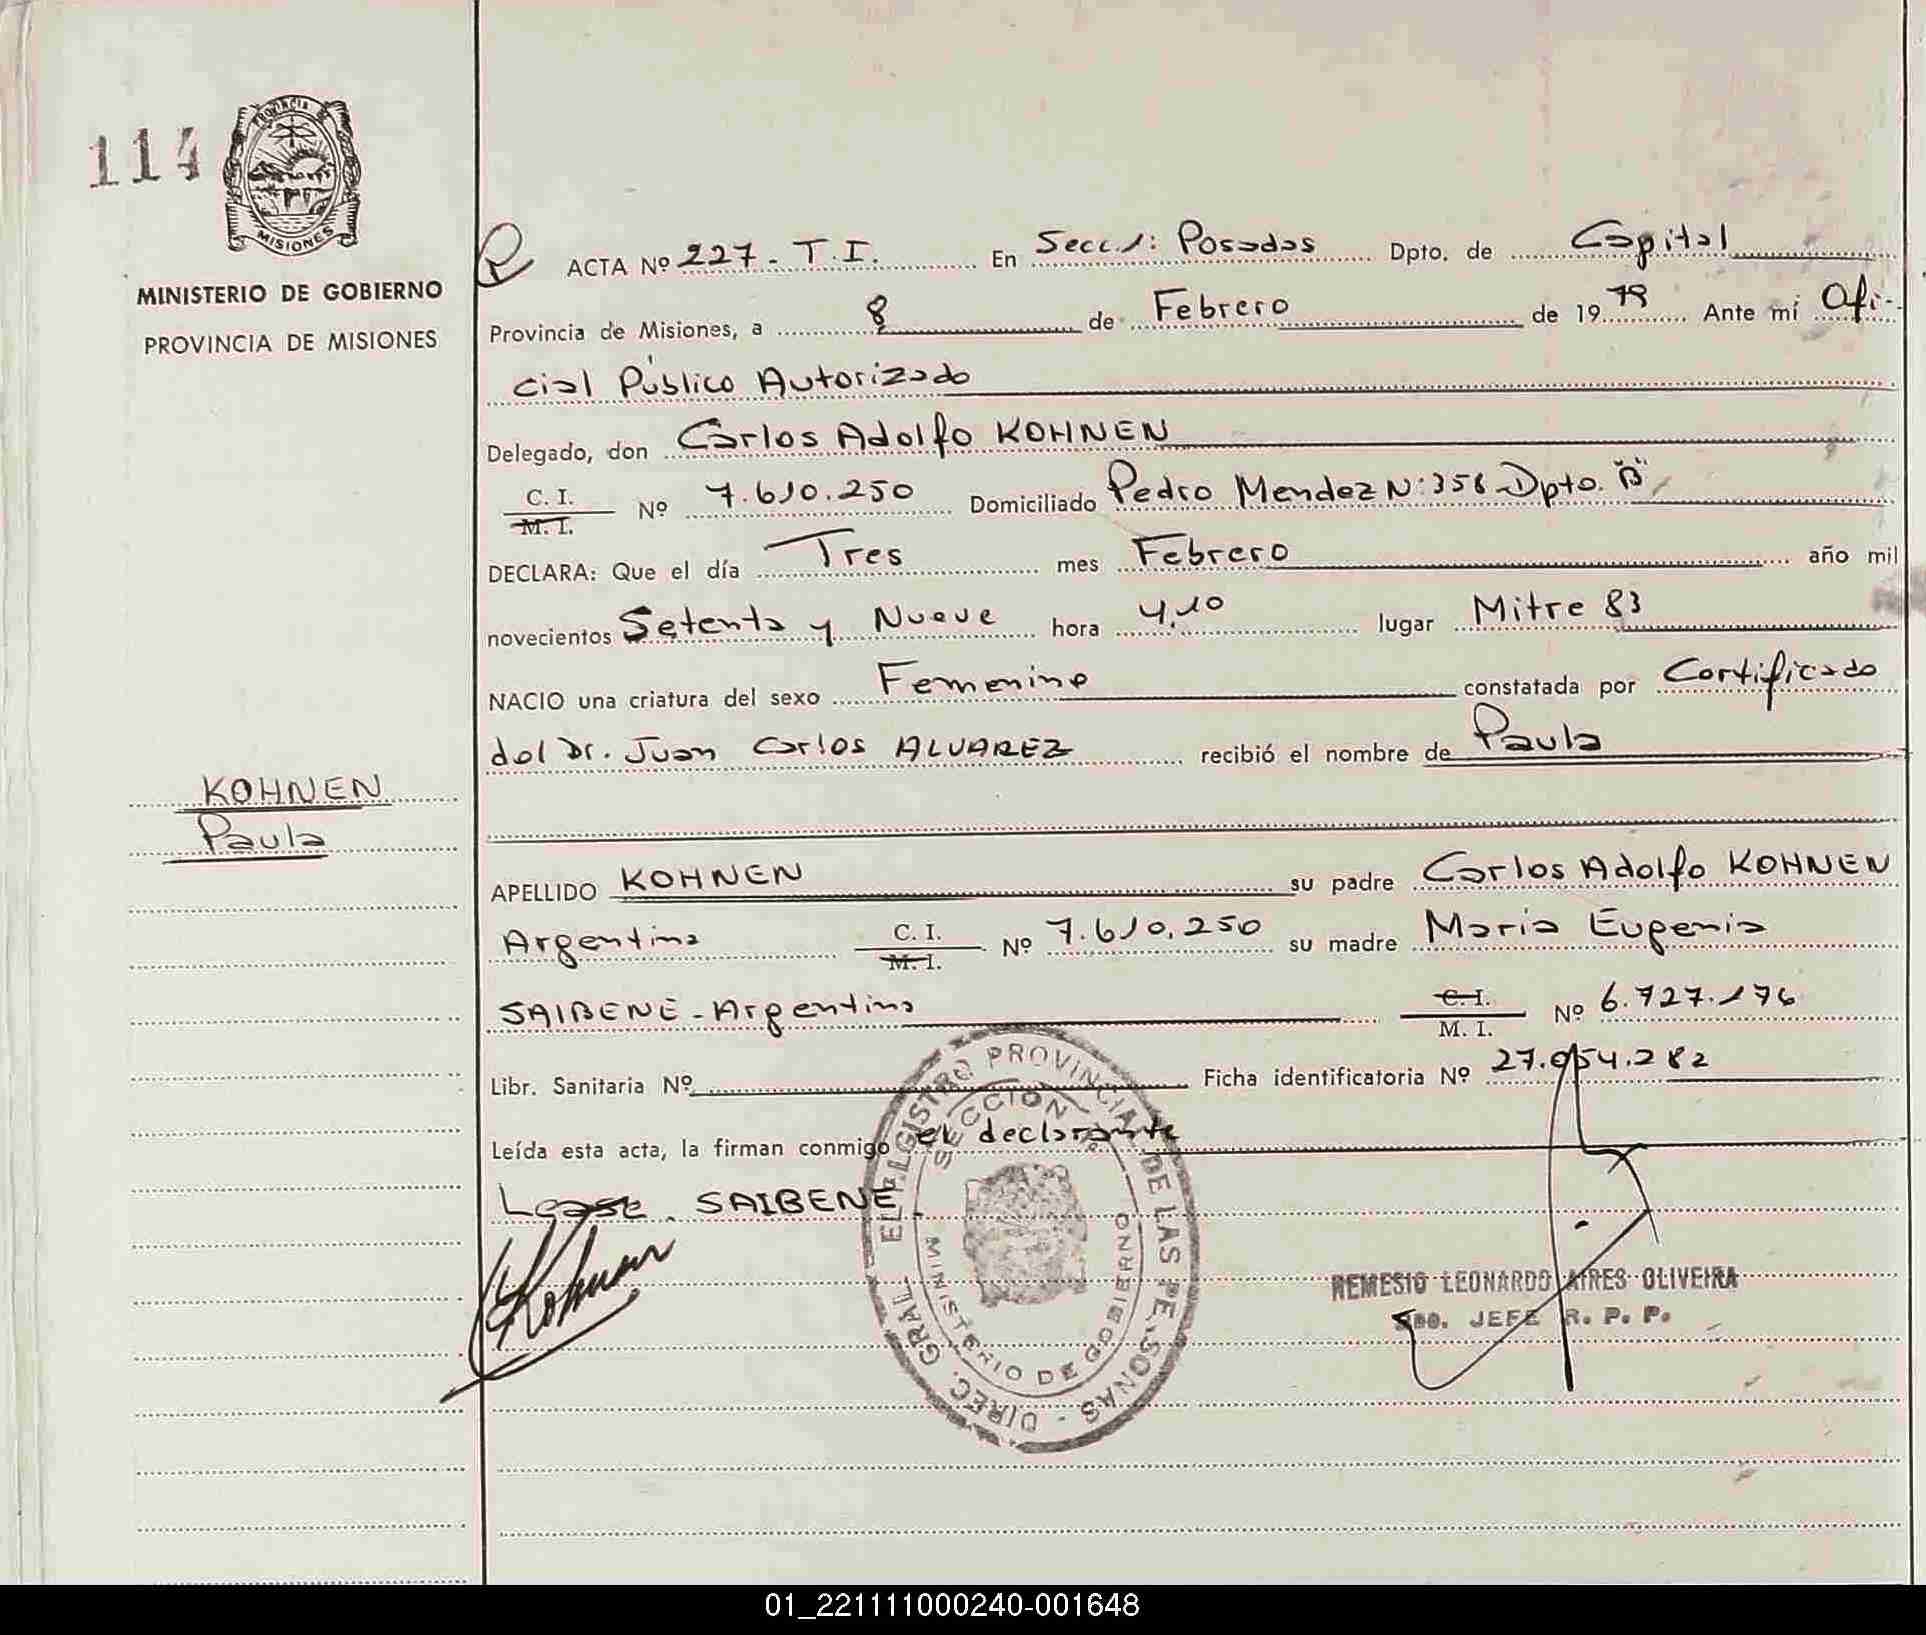 114
PROVINCIA DE
MISIONES
MINISTERIO DE GOBIERNO
PROVINCIA DE MISIONES
KOHNEN
Paula
ACTA Nº 227 - T.I. En Secc. 1: Posadas Dpto. de Capital
Provincia de Misiones, a 8 de Febrero de 1979 Ante mí Ofi-
cial Público Autorizado
Delegado, don Carlos Adolfo KOHNEN
C. I. / M. I. Nº 7.610.250 Domiciliado Pedro Mendez N: 356 - Dpto. "B"
DECLARA: Que el día Tres mes Febrero año mil
novecientos Setenta y Nueve hora 4,10 lugar Mitre 83
NACIO una criatura del sexo Femenino constatada por Certificado
del Dr. Juan Carlos ALVAREZ recibió el nombre de Paula
APELLIDO KOHNEN su padre Carlos Adolfo KOHNEN
Argentino C. I. / M. I. Nº 7.610.250 su madre Maria Eugenia
SAIBENE - Argentina C. I. / M. I. Nº 6.727.176
Libr. Sanitaria Nº Ficha identificatoria Nº 27.054.282
Leída esta acta, la firman conmigo el declarante
Lease. SAIBENE.
Kohnen
DIREC. GRAL. DEL REGISTRO PROVINCIAL DE LAS PERSONAS -
SECCION
MINISTERIO DE GOBIERNO
NEMESIO LEONARDO AIRES OLIVEIRA
SDO. JEFE R. P. P.
01_221111000240-001648